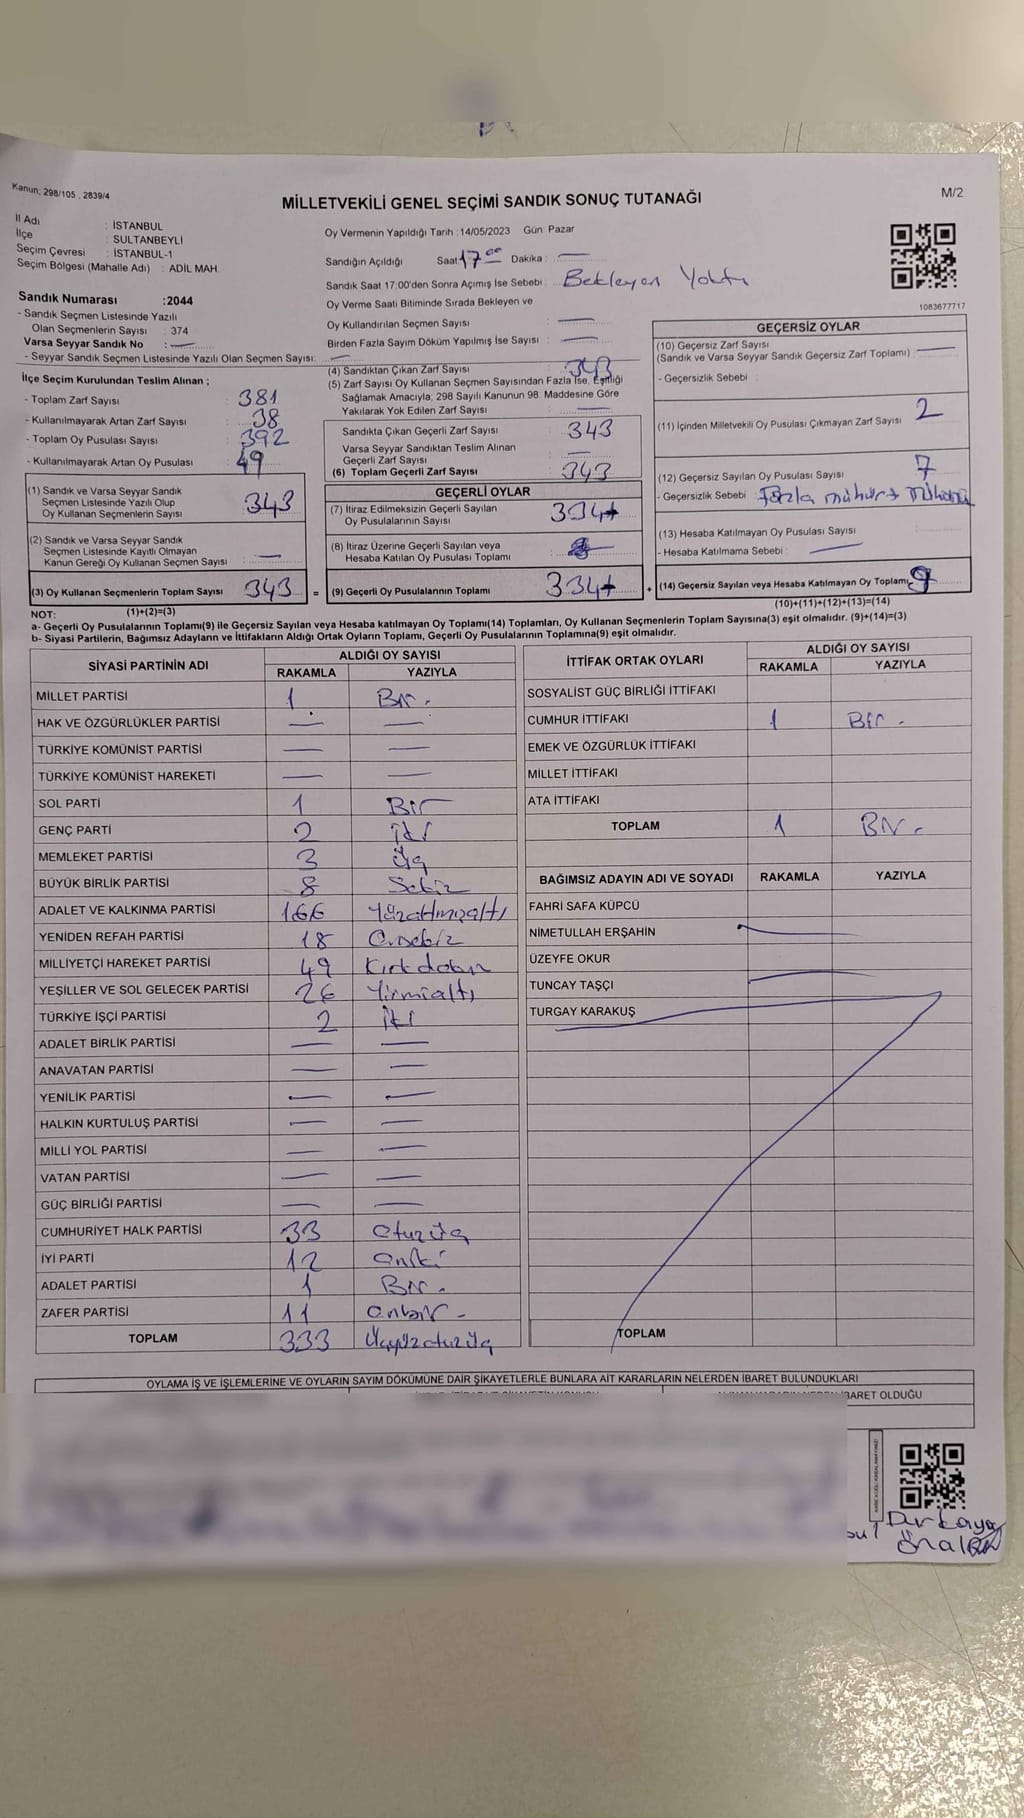 Kanun; 298/105 , 2839/4
MİLLETVEKİLİ GENEL SEÇİMİ SANDIK SONUÇ TUTANAĞI
M/2
İl Adı : İSTANBUL
İlçe : SULTANBEYLİ
Seçim Çevresi : İSTANBUL-1
Seçim Bölgesi (Mahalle Adı) : ADİL MAH.
Sandık Numarası :2044
- Sandık Seçmen Listesinde Yazılı
Olan Seçmenlerin Sayısı : 374
Varsa Seyyar Sandık No : —
- Seyyar Sandık Seçmen Listesinde Yazılı Olan Seçmen Sayısı: —
Oy Vermenin Yapıldığı Tarih :14/05/2023 Gün: Pazar
Sandığın Açıldığı Saat 17 00 Dakika : —
Sandık Saat 17.00'den Sonra Açımış İse Sebebi : Bekleyen Yoktu
Oy Verme Saati Bitiminde Sırada Bekleyen ve
Oy Kullandırılan Seçmen Sayısı : —
Birden Fazla Sayım Döküm Yapılmış İse Sayısı : —
1083677717
İlçe Seçim Kurulundan Teslim Alınan ;
- Toplam Zarf Sayısı : 381
- Kullanılmayarak Artan Zarf Sayısı : 38
- Toplam Oy Pusulası Sayısı : 392
- Kullanılmayarak Artan Oy Pusulası : 49
(1) Sandık ve Varsa Seyyar Sandık
Seçmen Listesinde Yazılı Olup
Oy Kullanan Seçmenlerin Sayısı : 343
(2) Sandık ve Varsa Seyyar Sandık
Seçmen Listesinde Kayıtlı Olmayan
Kanun Gereği Oy Kullanan Seçmen Sayısı : —
(3) Oy Kullanan Seçmenlerin Toplam Sayısı : 343 =
(1)+(2)=(3)
(4) Sandıktan Çıkan Zarf Sayısı : 343
(5) Zarf Sayısı Oy Kullanan Seçmen Sayısından Fazla İse, Eşitliği
Sağlamak Amacıyla; 298 Sayılı Kanunun 98. Maddesine Göre
Yakılarak Yok Edilen Zarf Sayısı : —
Sandıkta Çıkan Geçerli Zarf Sayısı : 343
Varsa Seyyar Sandıktan Teslim Alınan
Geçerli Zarf Sayısı : —
(6) Toplam Geçerli Zarf Sayısı : 343
GEÇERLİ OYLAR
(7) İtiraz Edilmeksizin Geçerli Sayılan
Oy Pusulalarının Sayısı : 334
(8) İtiraz Üzerine Geçerli Sayılan veya
Hesaba Katılan Oy Pusulası Toplamı :
(9) Geçerli Oy Pusulalarının Toplamı : 334 +
GEÇERSİZ OYLAR
(10) Geçersiz Zarf Sayısı
(Sandık ve Varsa Seyyar Sandık Geçersiz Zarf Toplamı) : —
- Geçersizlik Sebebi :
(11) İçinden Milletvekili Oy Pusulası Çıkmayan Zarf Sayısı : 2
(12) Geçersiz Sayılan Oy Pusulası Sayısı : 7
- Geçersizlik Sebebi : Fazla mühür +
(13) Hesaba Katılmayan Oy Pusulası Sayısı :
- Hesaba Katılmama Sebebi : —
(14) Geçersiz Sayılan veya Hesaba Katılmayan Oy Toplamı: 9
(10)+(11)+(12)+(13)=(14)
NOT:
a- Geçerli Oy Pusulalarının Toplamı(9) ile Geçersiz Sayılan veya Hesaba katılmayan Oy Toplamı(14) Toplamları, Oy Kullanan Seçmenlerin Toplam Sayısına(3) eşit olmalıdır. (9)+(14)=(3)
b- Siyasi Partilerin, Bağımsız Adayların ve İttifakların Aldığı Ortak Oyların Toplamı, Geçerli Oy Pusulalarının Toplamına(9) eşit olmalıdır.
SİYASİ PARTİNİN ADI ALDIĞI OY SAYISI
RAKAMLA YAZIYLA
MİLLET PARTİSİ 1 Bir.
HAK VE ÖZGÜRLÜKLER PARTİSİ — —
TÜRKİYE KOMÜNİST PARTİSİ — —
TÜRKİYE KOMÜNİST HAREKETİ — —
SOL PARTİ 1 Bir
GENÇ PARTİ 2 İki
MEMLEKET PARTİSİ 3 Üç
BÜYÜK BİRLİK PARTİSİ 8 Sekiz
ADALET VE KALKINMA PARTİSİ 166 Yüzaltmışaltı
YENİDEN REFAH PARTİSİ 18 Onsekiz
MİLLİYETÇİ HAREKET PARTİSİ 49 Kırkdokuz
YEŞİLLER VE SOL GELECEK PARTİSİ 26 Yirmialtı
TÜRKİYE İŞÇİ PARTİSİ 2 İki
ADALET BİRLİK PARTİSİ — —
ANAVATAN PARTİSİ — —
YENİLİK PARTİSİ — —
HALKIN KURTULUŞ PARTİSİ — —
MİLLİ YOL PARTİSİ — —
VATAN PARTİSİ — —
GÜÇ BİRLİĞİ PARTİSİ — —
CUMHURİYET HALK PARTİSİ 33 Otuzüç
İYİ PARTİ 12 Oniki
ADALET PARTİSİ 1 Bir.
ZAFER PARTİSİ 11 Onbir -
TOPLAM 333 Üçyüzotuzüç
İTTİFAK ORTAK OYLARI ALDIĞI OY SAYISI
RAKAMLA YAZIYLA
SOSYALİST GÜÇ BİRLİĞİ İTTİFAKI
CUMHUR İTTİFAKI 1 Bir.
EMEK VE ÖZGÜRLÜK İTTİFAKI
MİLLET İTTİFAKI
ATA İTTİFAKI
TOPLAM 1 Bir.
BAĞIMSIZ ADAYIN ADI VE SOYADI RAKAMLA YAZIYLA
FAHRİ SAFA KÜPCÜ
NİMETULLAH ERŞAHİN
ÜZEYFE OKUR
TUNCAY TAŞÇI
TURGAY KARAKUŞ
TOPLAM
OYLAMA İŞ VE İŞLEMLERİNE VE OYLARIN SAYIM DÖKÜMÜNE DAİR ŞİKAYETLERLE BUNLARA AİT KARARLARIN NELERDEN İBARET BULUNDUKLARI
İBARET OLDUĞU